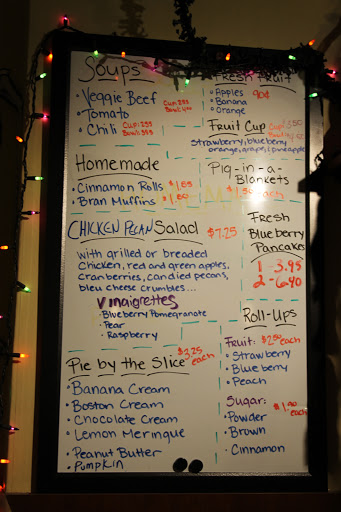 Soups
• Veggie Beef
• Tomato
• Chili
Cup: 2.95
Cup: 2.95
Fresh Fruit
• Apples 90¢
• Banana
• Orange
Fruit Cup
strawberry, blueberry
orange, grape, pineapple
Homemade
• Cinnamon Rolls $1.85
• Bran Muffins $1.80
Pig-in-a-
Blankets
each
CHICKEN PECAN Salad $7.25
with grilled or breaded
chicken, red and green apples,
cranberries, candied pecans,
bleu cheese crumbles...
Vinaigrettes
• Blueberry Pomegranate
• Pear
• Raspberry
Fresh
Blueberry
Pancakes
1 - 3.95
2 - 6.40
Pie by the Slice $3.25 each
• Banana Cream
• Boston Cream
• Chocolate Cream
• Lemon Meringue
• Peanut Butter
• Pumpkin
Roll-Ups
Fruit: each
• Strawberry
• Blueberry
• Peach
Sugar: each
• Powder
• Brown
• Cinnamon